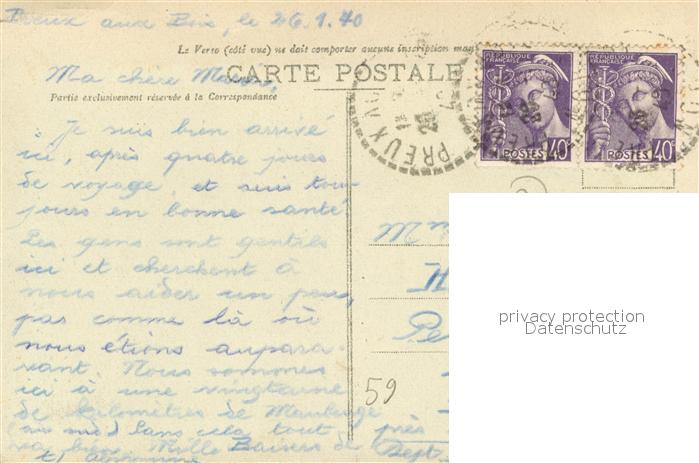 Preux aux Bois, le 26.1.40
Le Verso (côté vue) ne doit comporter aucune inscription
Ma chère
CARTE POSTALE
Partie exclusivement réservée à la Correspondance
Je suis bien arrivé
ici, après quatre jours
de voyage, et suis tou-
jours en bonne santé
Les gens sont gentils
ici et cherchent à
nous aider un peu,
pas comme là où
nous étions aupara-
vant. Nous sommes
ici à une vingtaine
de kilomètres de Maubeuge
(au sud) Sans cela tout
va bien. Mille Baisers de
PREUX AU
RÉPUBLIQUE FRANÇAISE
POSTES 40c
RÉPUBLIQUE FRANÇAISE
POSTES 40c
Mm
près
Dept.
59
privacy protection
Datenschutz